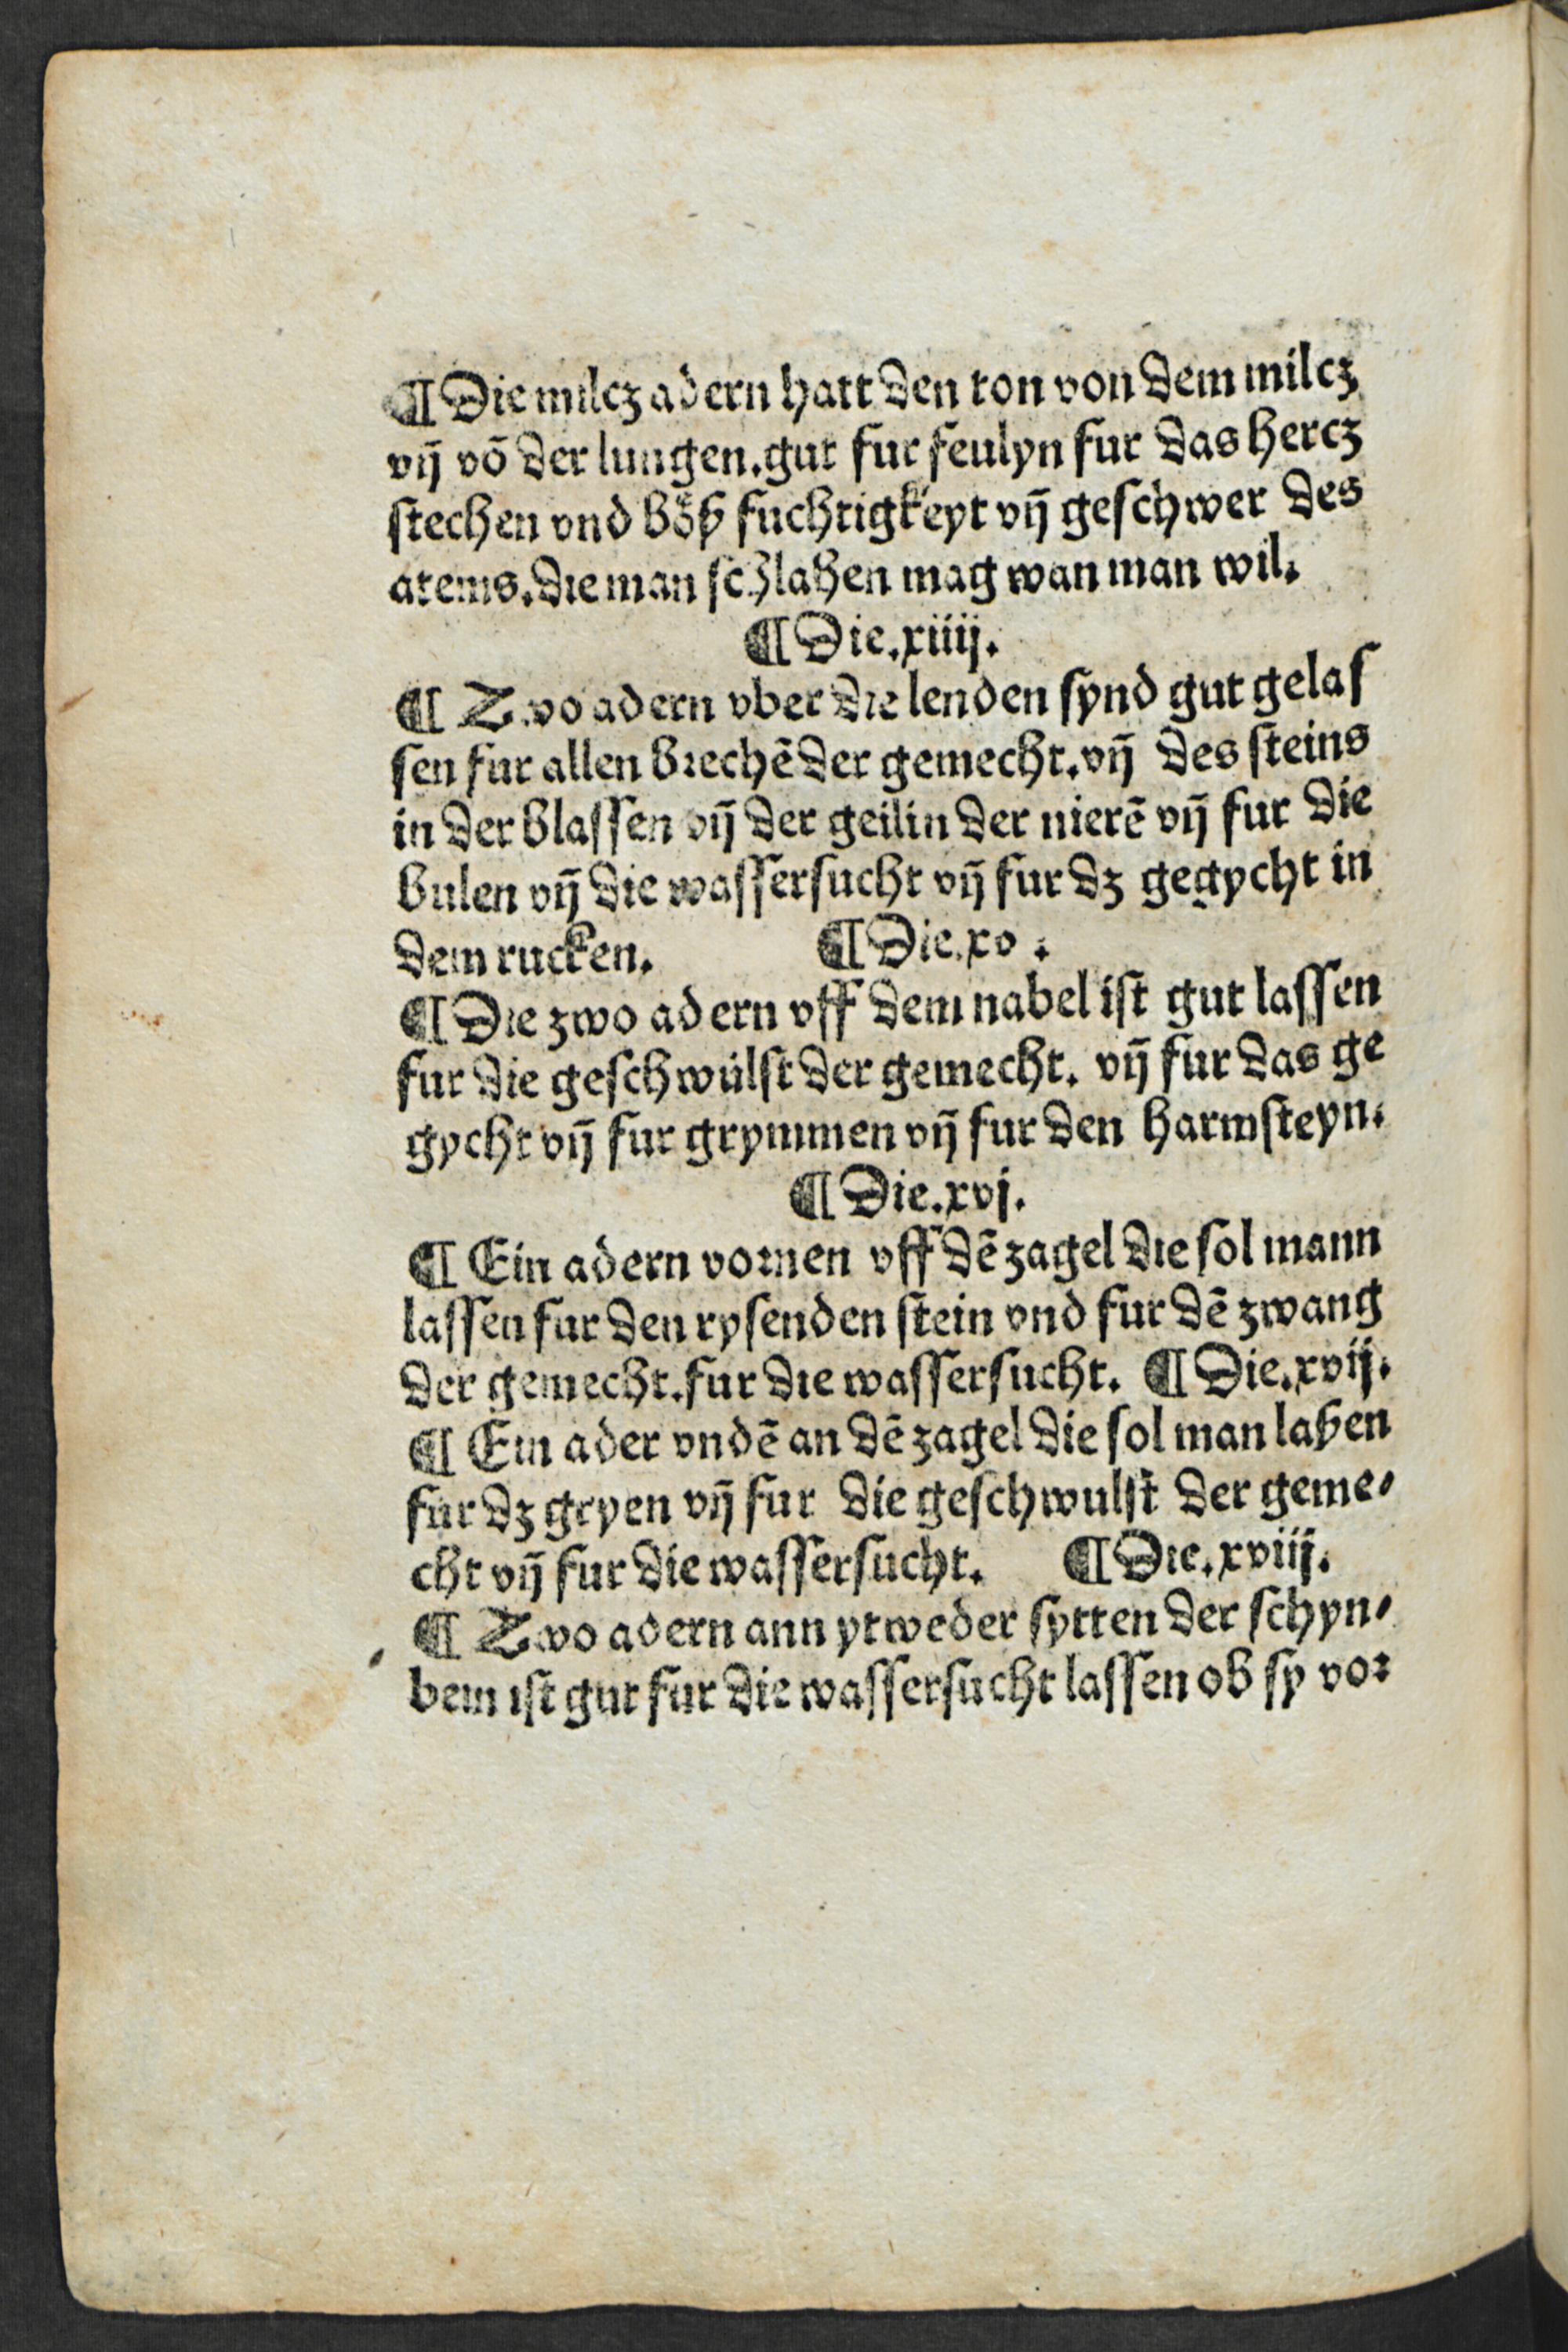 ¶ Die milcz adern hatt den ton von dem milcz
vñ võ der lungen. gut fur feulyn fur das hercz
stechen vnd bóß fuchtigkeyt vñ geschwer des
atems. die man schlahen mag wan man wil.
¶ Die. xiiij.
¶ Zwo adern vber die lenden synd gut gelas
sen fur allen brechẽ der gemecht. vñ des steins
in der blassen vñ der geilin der nierẽ vñ fur die
bulen vñ die wassersucht vñ fur dz gegycht in
dem rucken. ¶ Die. xv.
¶ Die zwo adern vff dem nabel ist gut lassen
fur die geschwülst der gemecht. vñ fur das ge
gycht vñ fur grymmen vñ fur den harmsteyn.
¶ Die. xvj.
¶ Ein adern vornen vff dẽ zagel die sol mann
lassen fur den rysenden stein vnd fur dẽ zwang
der gemecht. fur die wassersucht. ¶ Die. xvij.
¶ Ein ader vndẽ an dẽ zagel die sol man laßen
fur dz gryen vñ fur die geschwulst der geme⸗
cht vñ fur die wassersucht. ¶ Die. xviij.
¶ Zwo adern ann ytweder sytten der schyn⸗
bein ist gut fur die wassersucht lassen ob sy vor